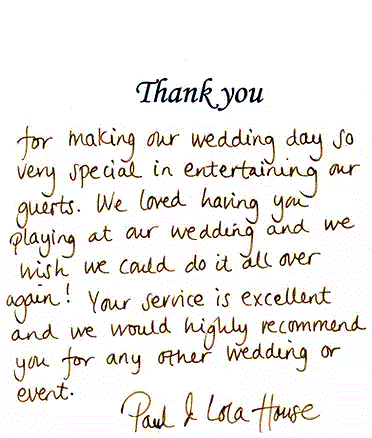 Thank you
for making our wedding day so
very special in entertaining our
guests. We loved having you
playing at our wedding and we
wish we could do it all over
again! Your service is excellent
and we would highly recommend
you for any other wedding or
event.
Paul & Lola House